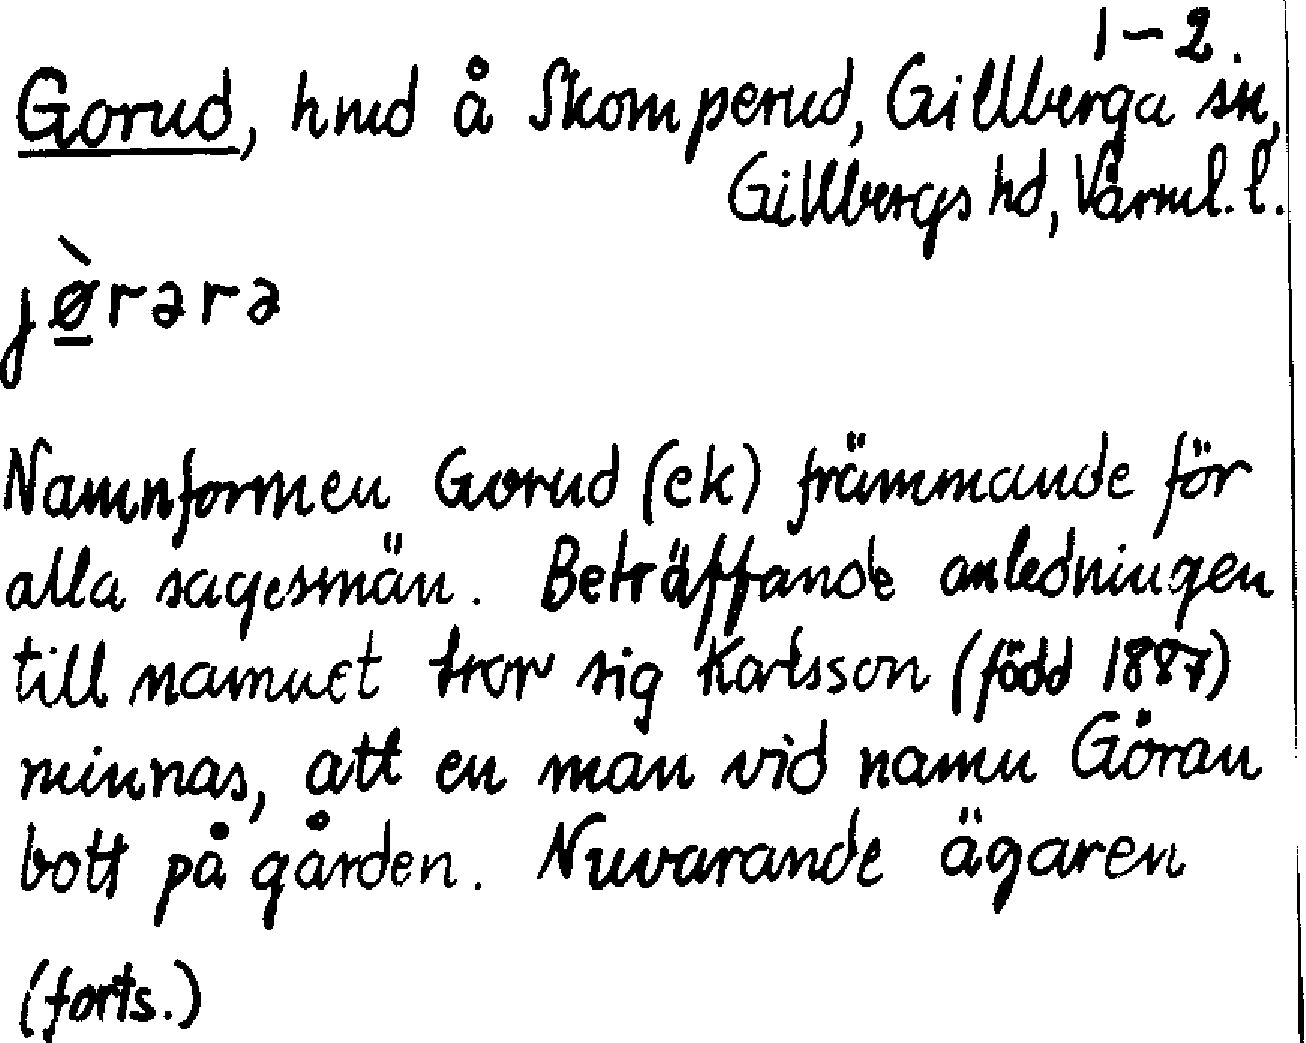 1-2.
Gorud, hmd å Skomperud, Gillberga sn,
Gillbergs hd, Värml. l.
jø̀rərə
Namnformen Gorud (ek) främmande för
alla sagesmän. Beträffande anledningen
till namnet tror sig Karlsson (född 1887)
minnas, att en man vid namn Göran
bott på gården. Nuvarande ägaren
(forts.)